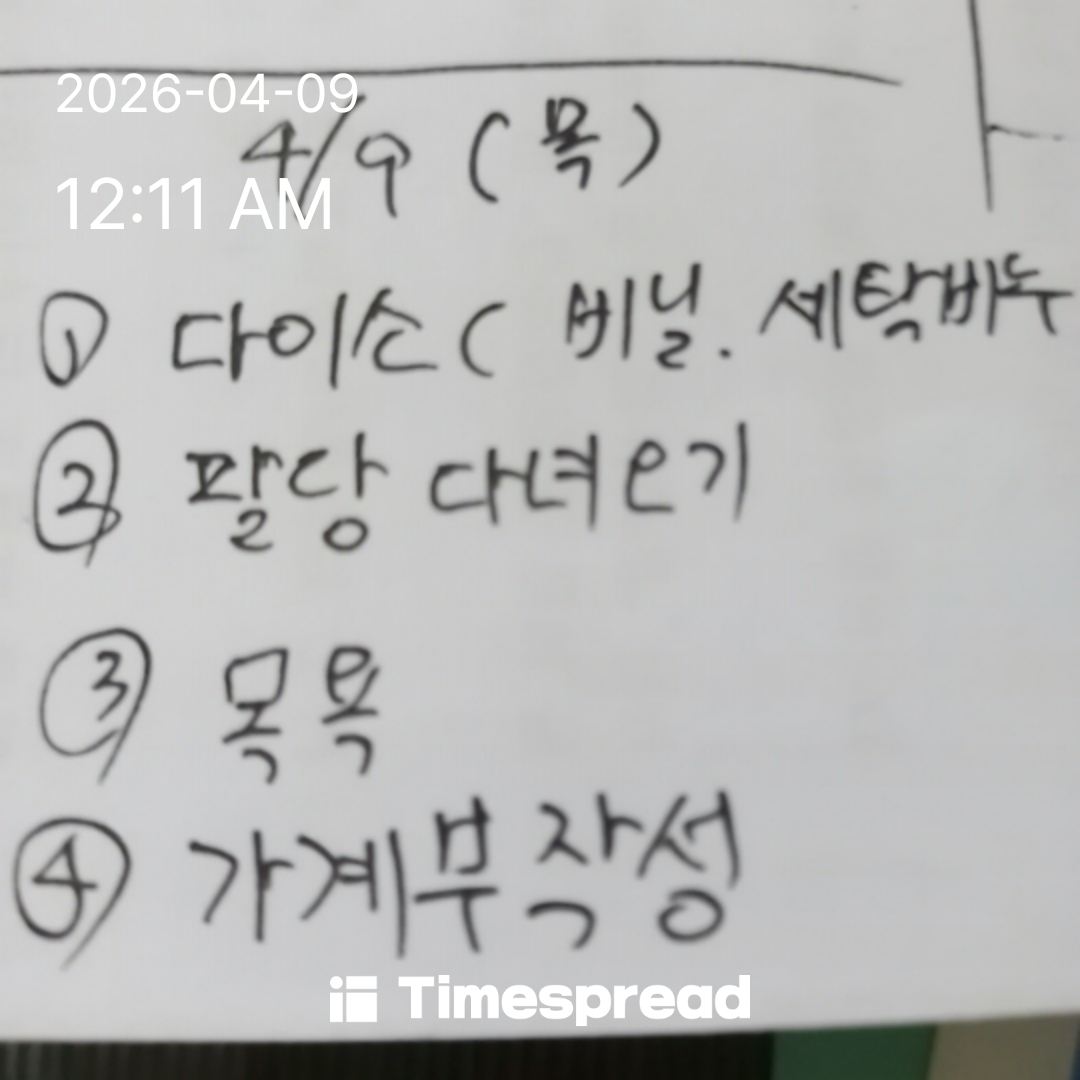 2026-04-09
4/9 (목)
12:11 AM
① 다이소 ( 비닐. 세탁비누
② 팔당 다녀오기
③ 목욕
④ 가계부 작성
Timespread